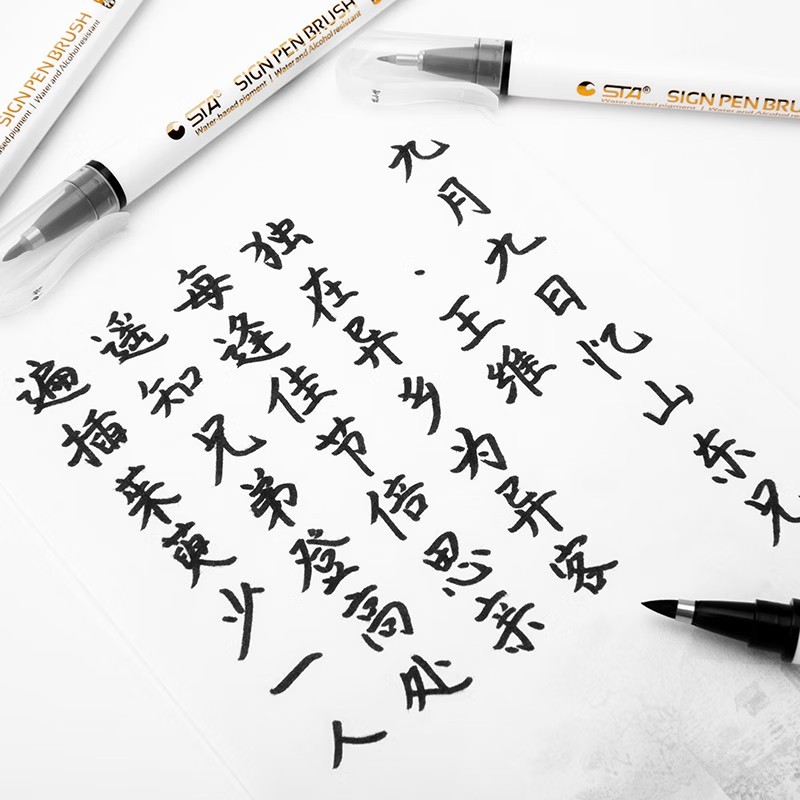 SIGN PEN BRUSH
sed pigment | Water and Alcohol resistant
STA® SIGN PEN BRUSH
Water-based pigment | Water and Alcohol resistant
STA® SIGN PEN BRU
Water-based pigment | Water and Alcohol
九月九日忆山东兄
·王维
独在异乡为异客
每逢佳节倍思亲
遥知兄弟登高处
遍插茱萸少一人